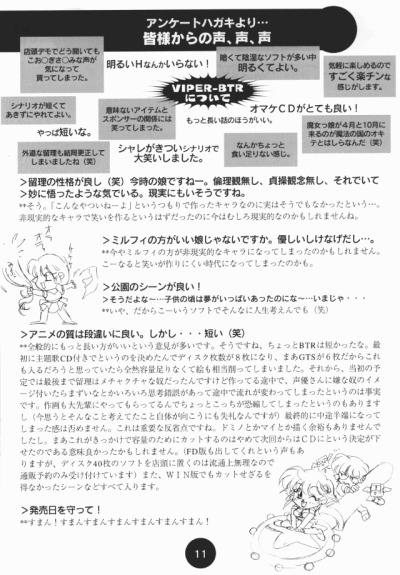 アンケートハガキより…
皆様からの声、声、声
店頭デモでどう聞いても
こお○ぎさ○みな声が
気になって
買ってしました。
明るいHなんかいらない！
暗くて陰湿なソフトが多い中
明るくてよい。
気軽に楽しめるので
すごく楽チンな
感じがします。
VIPER-BTR
について
シナリオが短くて
あきずにやれてよい。
やっぱ短いな。
意味ないアイテムと
スポンサーの関係には
笑ってしまった。
オマケCDがとても良い！
もっと長い話のほうがいい。
外道な留理も結局更正して
しまいましたね（笑）
シャレがきついシナリオで
大笑いしました。
なんかちょっと
食い足りない感じ。
魔女っ娘が４月と10月に
来るのが魔法の国のオキ
テとはしらなんだ（笑）
＞留理の性格が良し（笑）今時の娘ですねー。倫理観無し、貞操観念無し、それでいて
＞妙に悟ったような気でいる。現実にもいそうですね。
**そう。「こんなやついねーよ」というつもりで作ったキャラなのに実はそうでもなかったという…。
非現実的なキャラで笑いを作るというはずだったのに今はむしろ現実的なのかもしれませんね。
＞ミルフィの方がいい娘じゃないですか。優しいしけなげだし…。
**今やミルフィの方が非現実的なキャラになってしまったのかもしれません。
こーなると笑いが作りにくい時代になってしまったのかも。
＞公園のシーンが良い！
＞そうだよな～…子供の頃は夢がいっぱいあったのにな～…いまじゃ・・・
**いや、だからこーいうソフトでそんなに人生考えんでも（笑）
＞アニメの質は段違いに良い。しかし・・・短い（笑）
**全般的にもっと長い方がいいという意見が多いです。そうですね、ちょっとBTRは短かったな。最
初に主題歌CD付きでというのを決めたんでディスク枚数が８枚になり、まあGTSが６枚だからこれ
も入るだろうと思っていたら全然容量足りなくて絵も相当削ってしまいました。それから、当初の予
定では最後まで留理はメチャクチャな奴だったんですけど作ってる途中で、声優さんに嫌な奴のイメ
ージ付いたらまずいなとかいろいろ思考錯誤があって途中で流れが変わってしまったというのは事実
です。作画も大先輩にやってもらってるんでちょっとこっちが恐縮してしまったというのもあります
（今思うとそんなこと考えてたこと自体が向こうにも失礼なんですが）最終的に中途半端になって
しまった感は否めません。これは重要な反省点ですね。ドミノとかマイとか描く余裕もありませんで
したし。まあこれがきっかけで容量のためにカットするのはやめて次回からはCDにという決意が下
せたのである意味良かったかもしれません。（FD版も出してくれという声もあ
りますが、ディスク40枚のソフトを店頭に置くのは流通上無理なので
通販予約のみ受け付けています）また、WIN版でもカットせざるを
得なかったシーンなどすべて入ります。
＞発売日を守って！
**すまん！すまんすまんすまんすまんすまん！
11